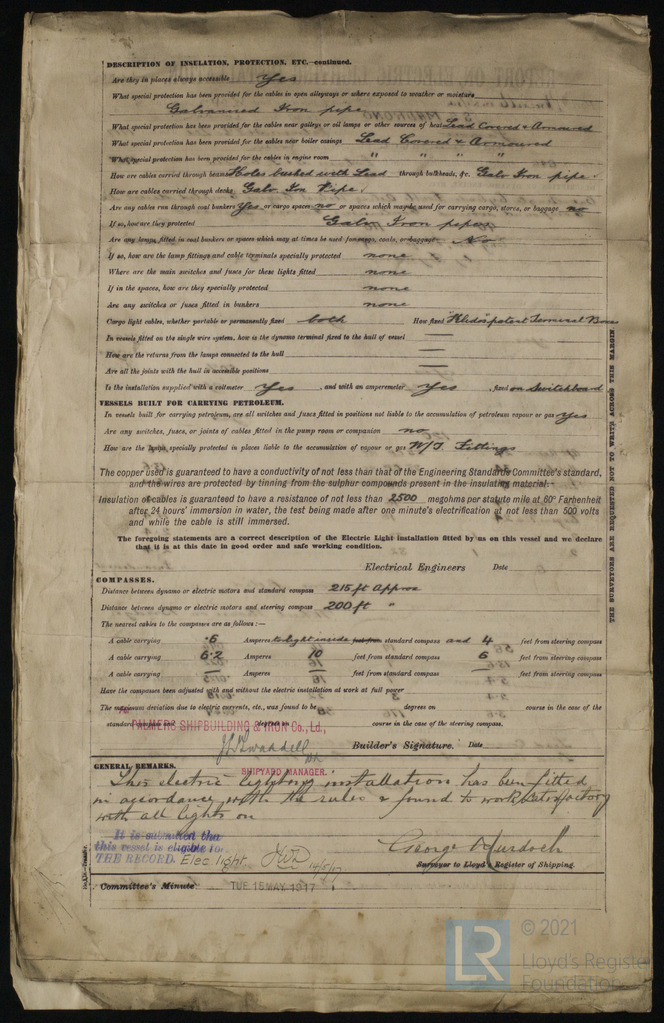 DESCRIPTION OF INSULATION, PROTECTION, ETC.—continued.
Are they in places always accessible Yes
What special protection has been provided for the cables in open alleyways or where exposed to weather or moisture
Galvanised Iron pipe
What special protection has been provided for the cables near galleys or oil lamps or other sources of heat Lead Covered & Armoured
What special protection has been provided for the cables near boiler casings Lead Covered & Armoured
What special protection has been provided for the cables in engine room " " " "
How are cables carried through beams Holes bushed with Lead through bulkheads, &c. Galv Iron pipe.
How are cables carried through decks Galv Iron Pipe.
Are any cables run through coal bunkers Yes or cargo spaces no or spaces which may be used for carrying cargo, stores, or baggage no
If so, how are they protected Galv Iron pipe
Are any lamps fitted in coal bunkers or spaces which may at times be used for cargo, coals, or baggage No
If so, how are the lamp fittings and cable terminals specially protected none
Where are the main switches and fuses for these lights fitted none
If in the spaces, how are they specially protected none
Are any switches or fuses fitted in bunkers none
Cargo light cables, whether portable or permanently fixed both How fixed patent Terminal Boxes
In vessels fitted on the single wire system, how is the dynamo terminal fixed to the hull of vessel —
How are the returns from the lamps connected to the hull —
Are all the joints with the hull in accessible positions —
Is the installation supplied with a voltmeter Yes, and with an amperemeter Yes, fixed on Switchboard
VESSELS BUILT FOR CARRYING PETROLEUM.
In vessels built for carrying petroleum, are all switches and fuses fitted in positions not liable to the accumulation of petroleum vapour or gas Yes
Are any switches, fuses, or joints of cables fitted in the pump room or companion no
How are the lamps specially protected in places liable to the accumulation of vapour or gas W/T Fittings
The copper used is guaranteed to have a conductivity of not less than that of the Engineering Standards Committee's standard,
and the wires are protected by tinning from the sulphur compounds present in the insulating material.
Insulation of cables is guaranteed to have a resistance of not less than 2500 megohms per statute mile at 60° Farhenheit
after 24 hours' immersion in water, the test being made after one minute's electrification at not less than 500 volts
and while the cable is still immersed.
The foregoing statements are a correct description of the Electric Light installation fitted by us on this vessel and we declare
that it is at this date in good order and safe working condition.
Electrical Engineers Date
COMPASSES.
Distance between dynamo or electric motors and standard compass 215 ft Approx
Distance between dynamo or electric motors and steering compass 200 ft "
The nearest cables to the compasses are as follows:—
A cable carrying .6 Amperes to light inside standard compass and 4 feet from steering compass
A cable carrying 6.2 Amperes 10 feet from standard compass 6 feet from steering compass
A cable carrying — Amperes — feet from standard compass — feet from steering compass
Have the compasses been adjusted with and without the electric installation at work at full power
The maximum deviation due to electric currents, etc., was found to be degrees on course in the case of the
standard compass and degrees on course in the case of the steering compass.
PALMERS SHIPBUILDING & IRON Co., Ld.,
Builder's Signature. Date
SHIPYARD MANAGER.
GENERAL REMARKS.
This electric lighting installation has been fitted
in accordance with the rules & found to work satisfactory
with all lights on
It is submitted that
this vessel is eligible for
THE RECORD. Elec light. 14/5/17
George Murdoch
Surveyor to Lloyd's Register of Shipping.
Committee's Minute TUE 15 MAY 1917
THE SURVEYORS ARE REQUESTED NOT TO WRITE ACROSS THIS MARGIN.
LR
© 2021
Lloyd's Register
Foundation